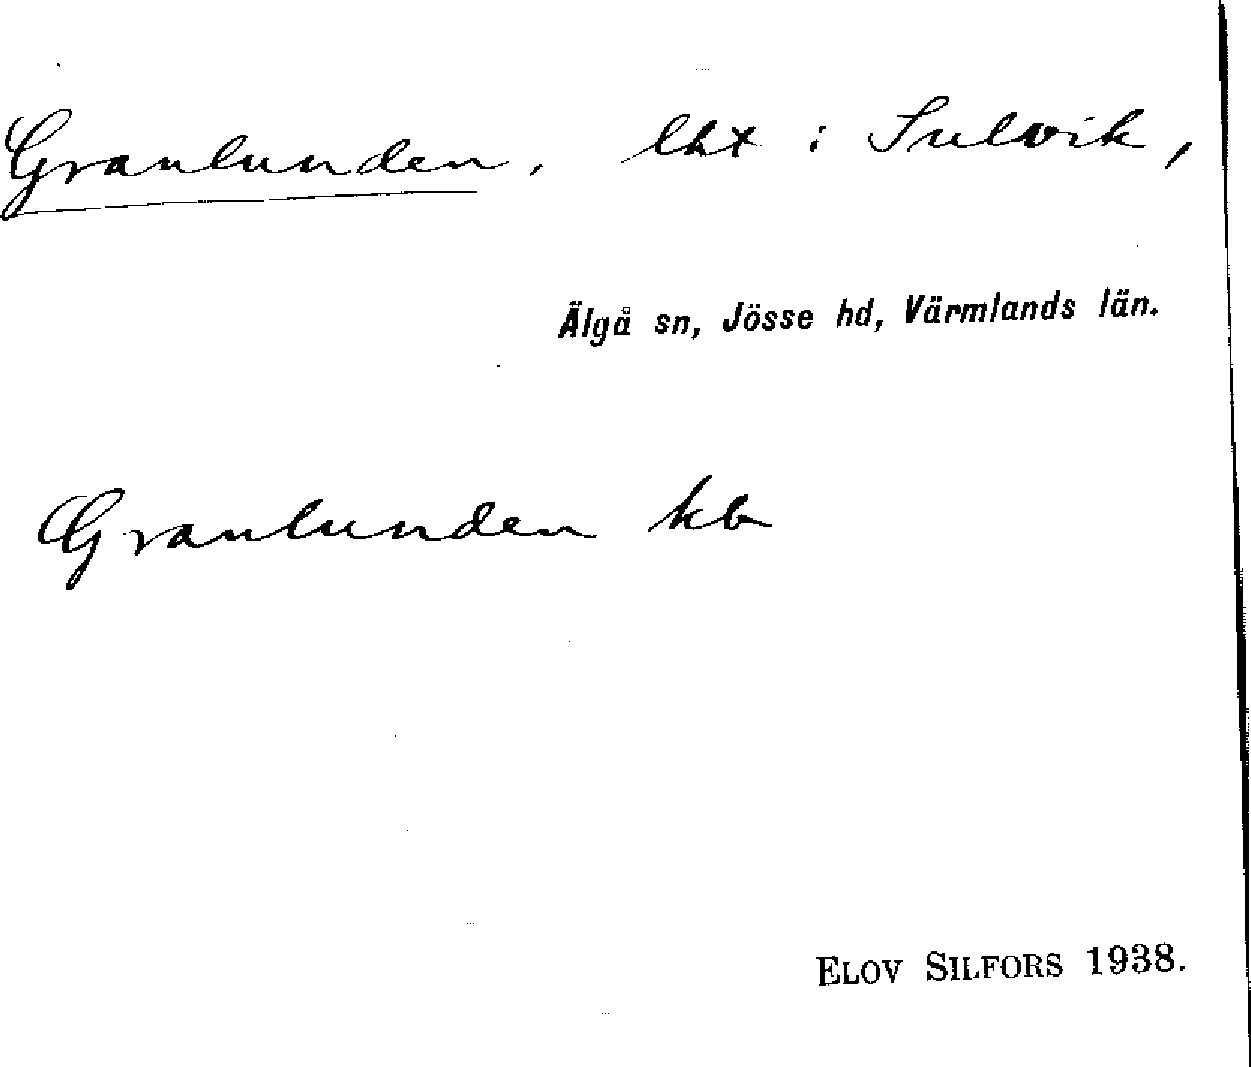 Granlunden, lht i Sulvik,
Älgå sn, Jösse hd, Värmlands län.
Granlunden kb
ELOV SILFORS 1938.